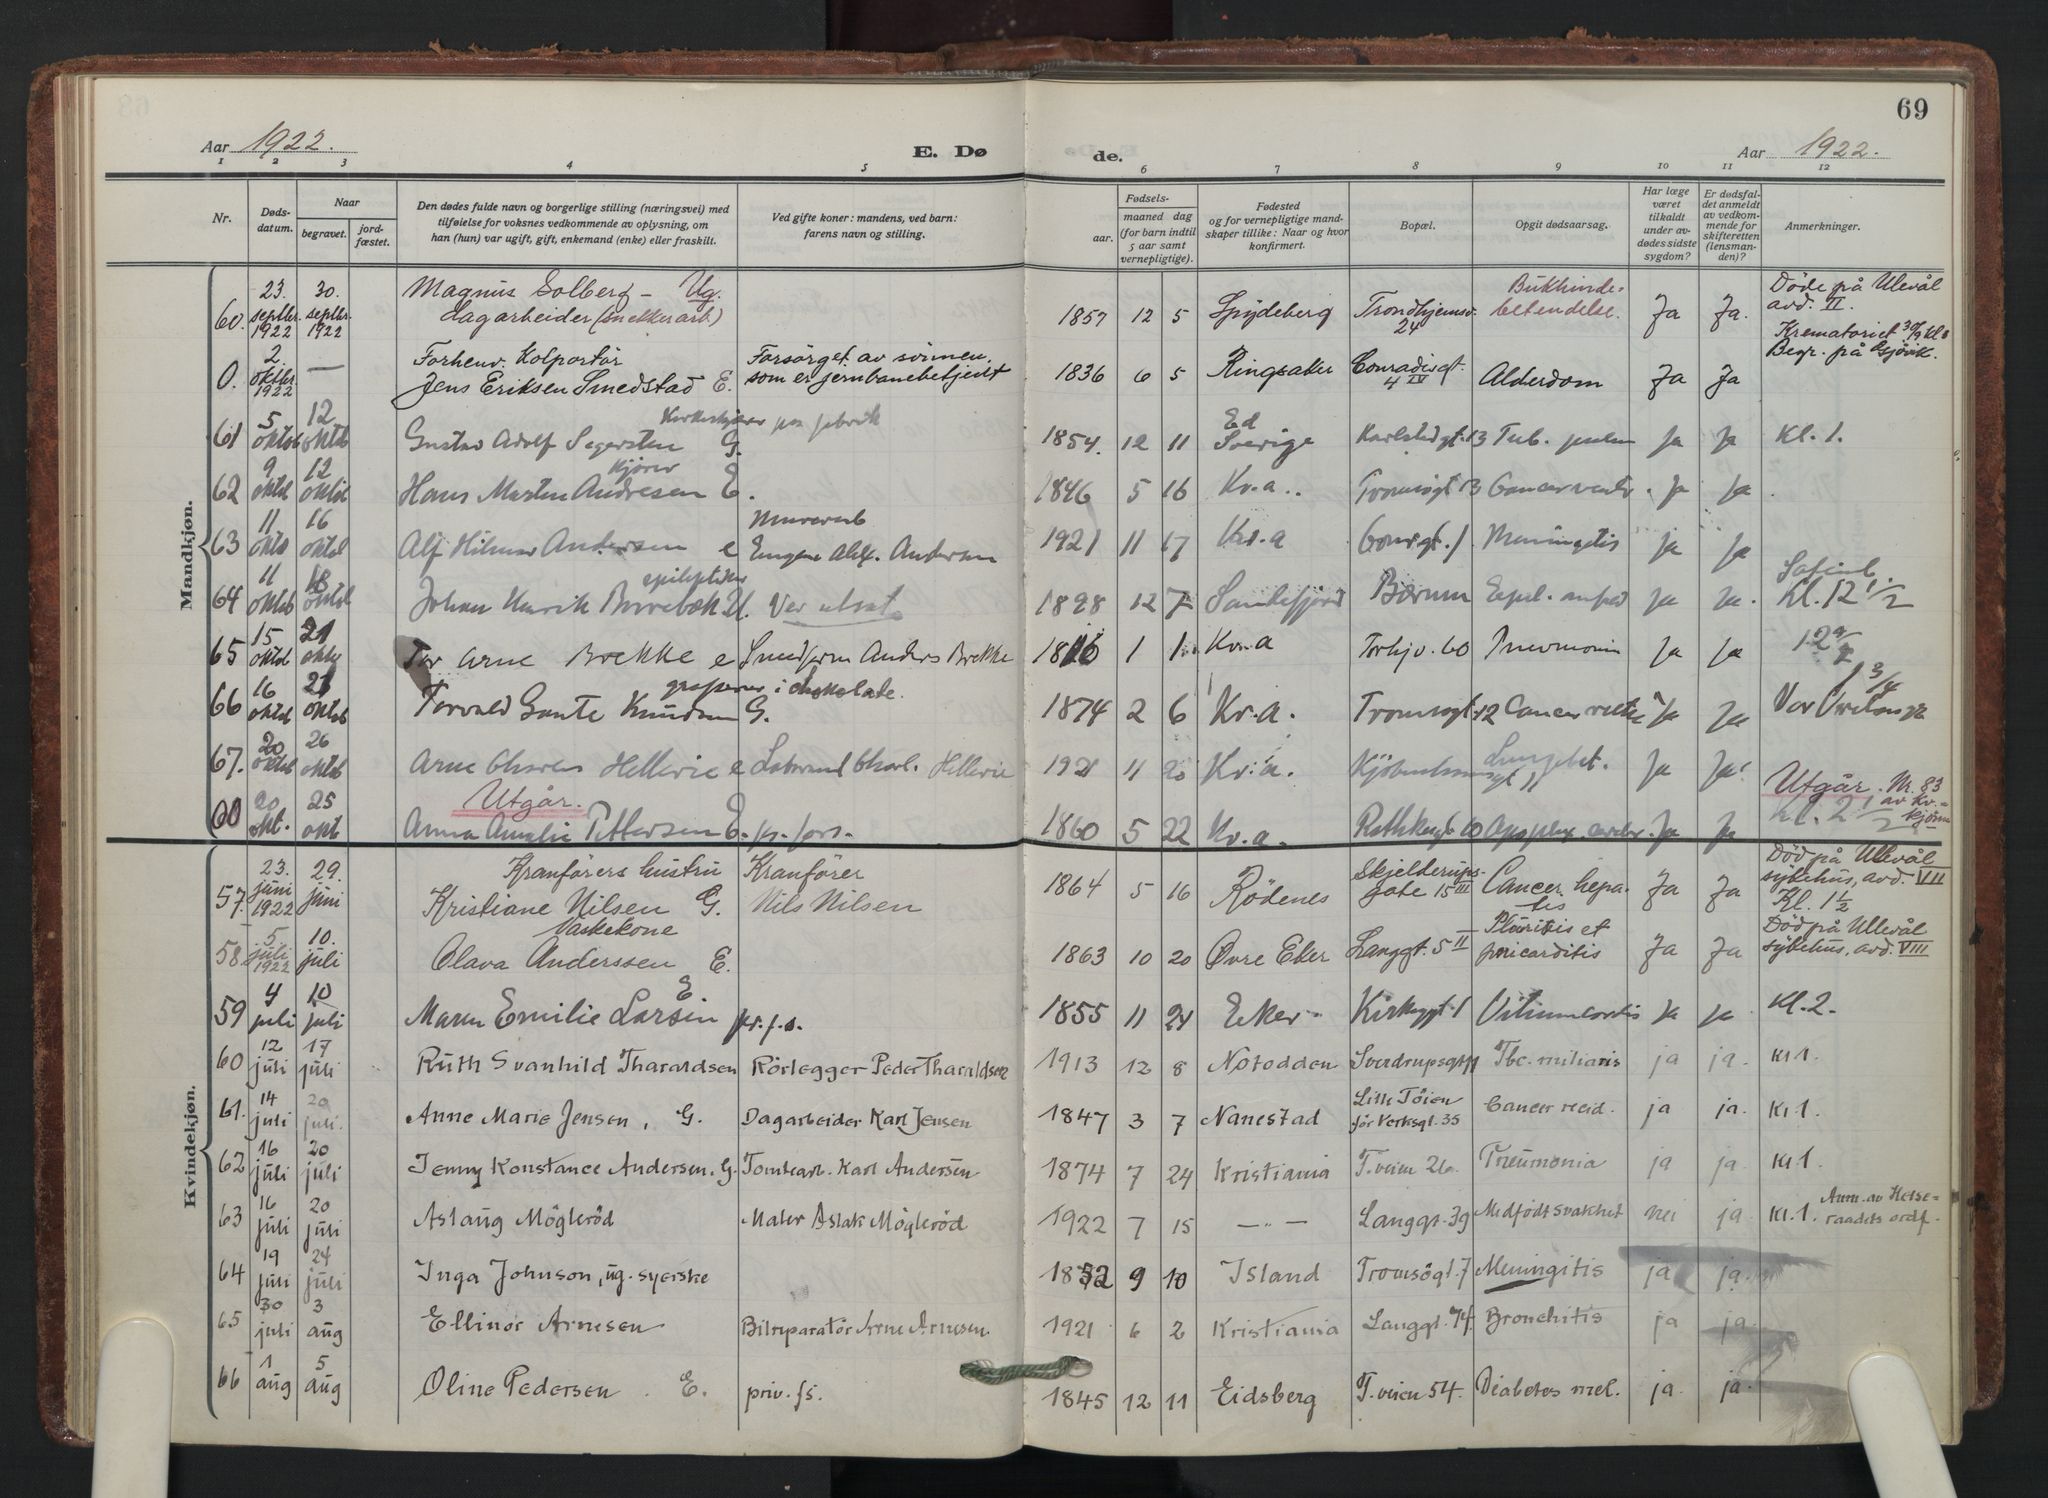 69
Aar 1922.
E. Dø de.
Aar 1922.
1 2 3 4 5 6 7 8 9 10 11 12
Nr.
Døds-
datum.
Naar
begravet.
jord-
fæstet.
Den dødes fulde navn og borgerlige stilling (næringsvei) med
tilføielse for voksnes vedkommende av oplysning, om
han (hun) var ugift, gift, enkemand (enke) eller fraskilt.
Ved gifte koner: mandens, ved barn:
farens navn og stilling.
Fødsels-
aar.
maaned dag
(for barn indtil
5 aar samt
vernepligtige).
Fødested
og for vernepligtige mand-
skaper tillike: Naar og hvor
konfirmert.
Bopæl.
Opgit dødsaarsag.
Har læge
været
tilkaldt
under av-
dødes sidste
sygdom?
Er dødsfal-
det anmeldt
av vedkom-
mende for
skifteretten
(lensman-
den)?
Anmerkninger.
Mandkjøn.
60. 23. septbr. 1922 30. septbr. 1922 Magnus Solberg – Ug. dagarbeider (snekkerarb.) 1857 12 5 Spydeberg Trondhjemsv. 24 Bukhinde-betendelse. Ja Ja. Døde på Ulevål avd. II.
0. 2. oktbr. 1922 — Forhenv. Kolportør Jens Eriksen Smedstad E. Forsørget av sønnen, som er jernbanebetjent 1836 6 5 Ringsaker Conradisgt. 4 IV Alderdom Ja Ja Krematoriet 30/9 kl 8 Begr. på Gjøvik.
61 5 oktob 12 oktob Gustav Adolf Segersten G. 1854. 12 11 Ed Sverige Karlstadgt. 13 Tub. pulm Ja Ja Kl. 1.
62 9 oktob 12 oktob Kjører Hans Martin Andresen E. 1846 5 16 Kr.a.. Tromsøgt 13 Cancer ventr. Ja Ja
63 11 oktb 16 oktob Alf Hilmar Andersen e Murerarb Eugen Alex. Andersen 1921 11 17 Kr.a Meningitis Ja Ja
64 11 oktob 18 oktob epileptiker Johan Henrik U. 1898 12 7 Sandefjord Bærum Epil. Ja Ja. Kl. 12 1/2
65 15 oktob 21 oktb Tor Arne Brekke e Anders Brekke 1 1 Kr.a Torhjv. 60 Pneumoni Ja Ja
66 16 oktob 21 oktob Torvald Knudsen G. i chokolade. 1874 2 6 Kr.a. Tromsøgt 12 Cancer recti Ja Ja 1 3/4
67. 20 oktob 26 oktob Arne Charles Hellerie e Charl. Hellerie 1921 11 20 Kr.a. Kjøbenhavnsgt 11 Lungebet. Ja Ja
00 20 okt. 25 okt Utgår. Anna Amalie Pettersen E. pr. fors. 1860 5 22 Kr.a. Rathkesgt 10 Apoplex. cerebr. Ja Ja Utgår. Nr. 83 av Kv.-kjønn Kl. 2 1/2
Kvindekjøn.
57. 23. juni 1922 29. juni Kranførers hustru Kristiane Nilsen G. Kranfører Nils Nilsen 1864 5 16 Rödenes Skjelderups-gate 15 III Cancer hepa-tis Ja Ja Död på Ullevål sykehus, avd. VII Kl. 1 1/2
58. 5. juli 1922 10. juli Vaskekone Olava Anderssen E. 1863 10 20 Øvre Eker Langgt. 5 II Pluritis et pericarditis Ja Ja Död på Ullevål sykehus, avd. VIII
59 4 juli 10 juli Maren Emilie Larsen E pr.f.s. 1855 11 24 Eker Kirkegt. 1 Vitium cordis Ja Ja Kl. 2.
60 12 juli 17 juli Ruth Svanhild Tharaldsen Rörlegger Peder Tharaldsen 1913 12 8 Notodden Sverdrupsgt 11 Tbc. miliaris ja ja. Kl 1.
61. 14 juli 20 juli. Anne Marie Jensen, G. Dagarbeider Karl Jensen 1847 3 7 Nanestad Lille Töien för Verksgt. 35 Cancer recid. ja ja. Kl 1.
62 16 juli 20 juli Jenny Konstance Andersen. G. Tomtearb. Karl Andersen 1874 7 24 Kristiania T.veien 26. Pneumonia ja ja. Kl 1.
63 16 juli 20 juli Aslaug Mögleröd Maler Aslak Möglerød 1922 7 15 —"— Langgt. 39 Medfödt svakhet nei ja. Kl. 1. Anm. av Helse-raadets ordf.
64 19 juli 24 juli Inga Johnson, ug. syerske 1852 9 10 Island Tromsögt. 7 Meningitis ja ja.
65 30 juli 3 aug Ellinor Arnesen Bilreparatör Arne Arnesen. 1921 6 2 Kristiania Langgt. Bronchitis ja ja.
66 1 aug 5 aug Oline Pedersen. E. priv. fs. 1845 12 11 Eidsberg T.veien 54. Diabetes mel. ja. ja.